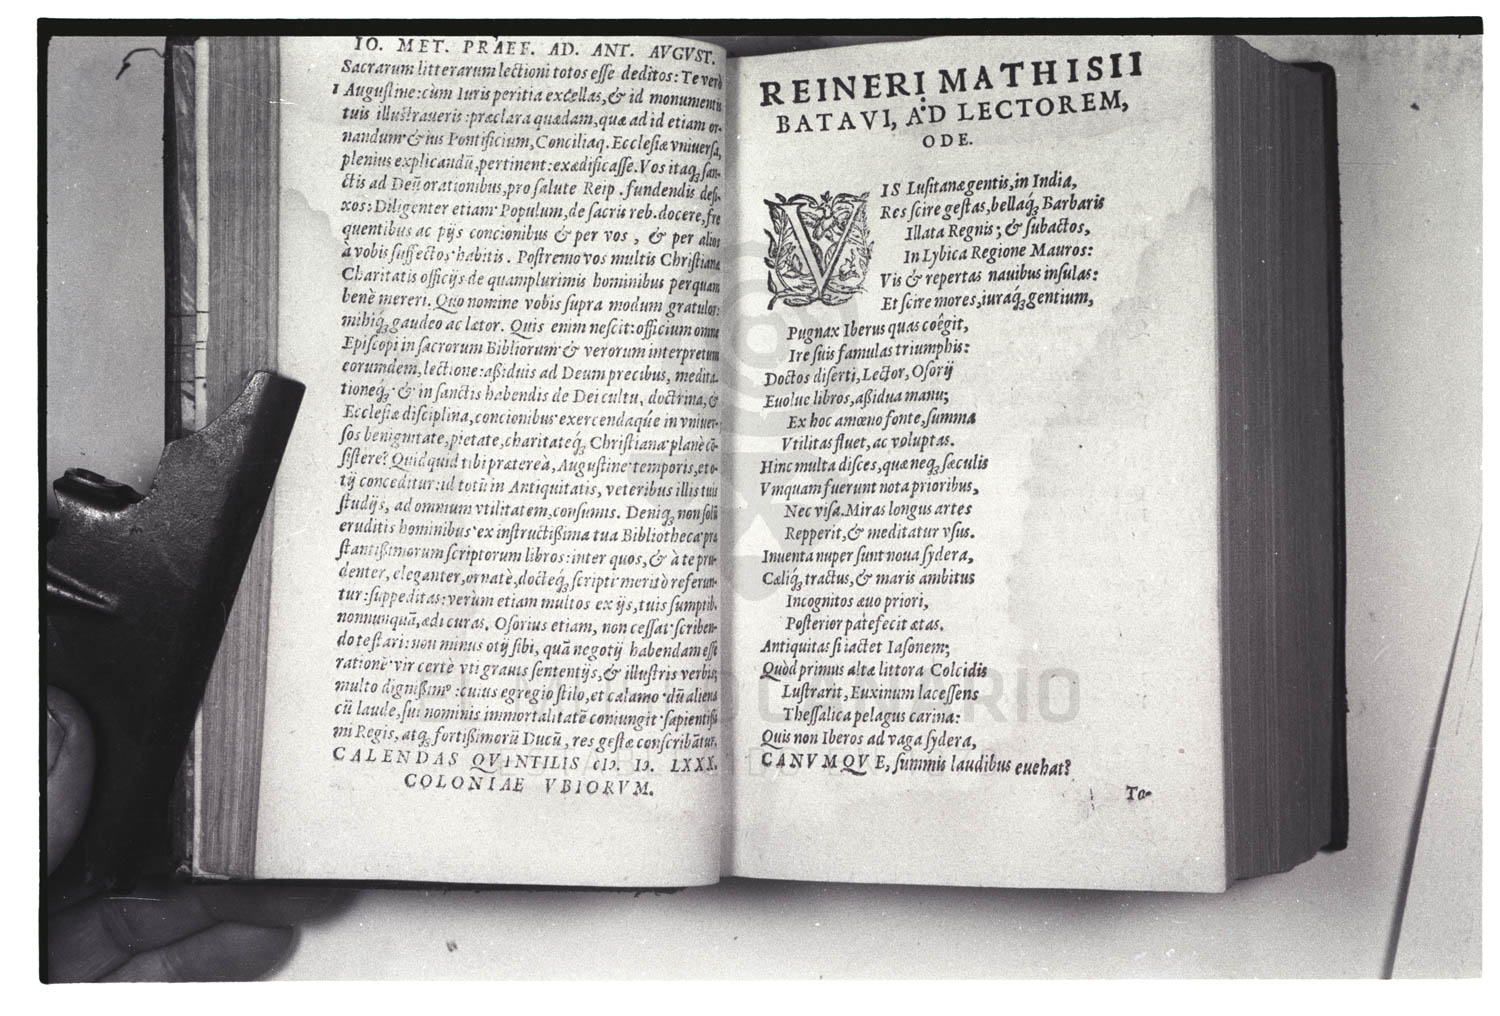 IO. MET. PRAEF. AD. ANT. AVGVST.
Sacrarum litterarum lectioni totos esse deditos: Te verò
1 Augustine: cum Iuris peritia excellas, & id monumentis
tuis illustraueris: præclara quædam, quæ ad id etiam or-
nandum & ius Pontificium, Conciliaq́; Ecclesiæ vniuersa,
plenius explicandū, pertinent: exædificasse. Vos itaq́; san-
ctis ad Deū orationibus, pro salute Reip. fundendis defi-
xos: Diligenter etiam Populum, de sacris reb. docere, fre
quentibus ac pijs concionibus & per vos, & per alios
à vobis suffectos habitis. Postremo vos multis Christiana
Charitatis officijs de quamplurimis hominibus perquam
benè mereri. Quo nomine vobis supra modum gratulor:
mihiq́; gaudeo ac lætor. Quis enim nescit: officium omne
Episcopi in sacrorum Bibliorum & verorum interpretum
eorumdem, lectione: aßiduis ad Deum precibus, medita-
tioneq́; & in sanctis habendis de Dei cultu, doctrina, &
Ecclesiæ disciplina, concionibus exercendaqúe in vniuer-
sos benignitate, pietate, charitateq́; Christiana planè cō-
sistere? Quidquid tibi præterea, Augustine temporis, et o-
tij conceditur: id totū in Antiquitatis, veteribus illis tuis
studijs, ad omnium vtilitatem, consumis. Deniq́; non solū
eruditis hominibus ex instructißima tua Bibliotheca præ
stantißimorum scriptorum libros: inter quos, & à te pru-
denter, eleganter, ornatè, docteq́; scripti meritò referun-
tur: suppeditas: verùm etiam multos ex ijs, tuis sumptib.
nonnunquā, ædi curas. Osorius etiam, non cessat scriben-
do testari: non minus otij sibi, quā negotij habendam esse
rationē vir certè vti grauis sententijs, & illustris verbis;
multo dignißim⁹: cuius egregio stilo, et calamo dū aliena
cū laude, sui nominis immortalitatē coniungit sapientißi
mi Regis, atq́; fortißimorū Ducū, res gestæ conscribātur.
CALENDAS QVINTILIS cIɔ. Iɔ. LXXX.
COLONIAE VBIORVM.
REINERI MATHISII
BATAVI, AD LECTOREM,
ODE.
VIS Lusitanæ gentis, in India,
Res scire gestas, bellaq́; Barbaris
Illata Regnis; & subactos,
In Lybica Regione Mauros:
Vis & repertas nauibus insulas:
Et scire mores, iuraq́; gentium,
Pugnax Iberus quas coêgit,
Ire suis famulas triumphis:
Doctos diserti, Lector, Osorij
Euolue libros, aßidua manu;
Ex hoc amœno fonte, summa
Vtilitas fluet, ac voluptas.
Hinc multa disces, quæ neq́; sæculis
Vmquam fuerunt nota prioribus,
Nec visa. Miras longus artes
Repperit, & meditatur vsus.
Inuenta nuper sunt noua sydera,
Cæliq́; tractus, & maris ambitus
Incognitos æuo priori,
Posterior patefecit ætas.
Antiquitas si iactet Iasonem;
Quòd primus alta littora Colcidis
Lustrarit, Euxinum lacessens
Thessalica pelagus carina:
Quis non Iberos ad vaga sydera,
CANVMQVE, summis laudibus euehat?
Ta-